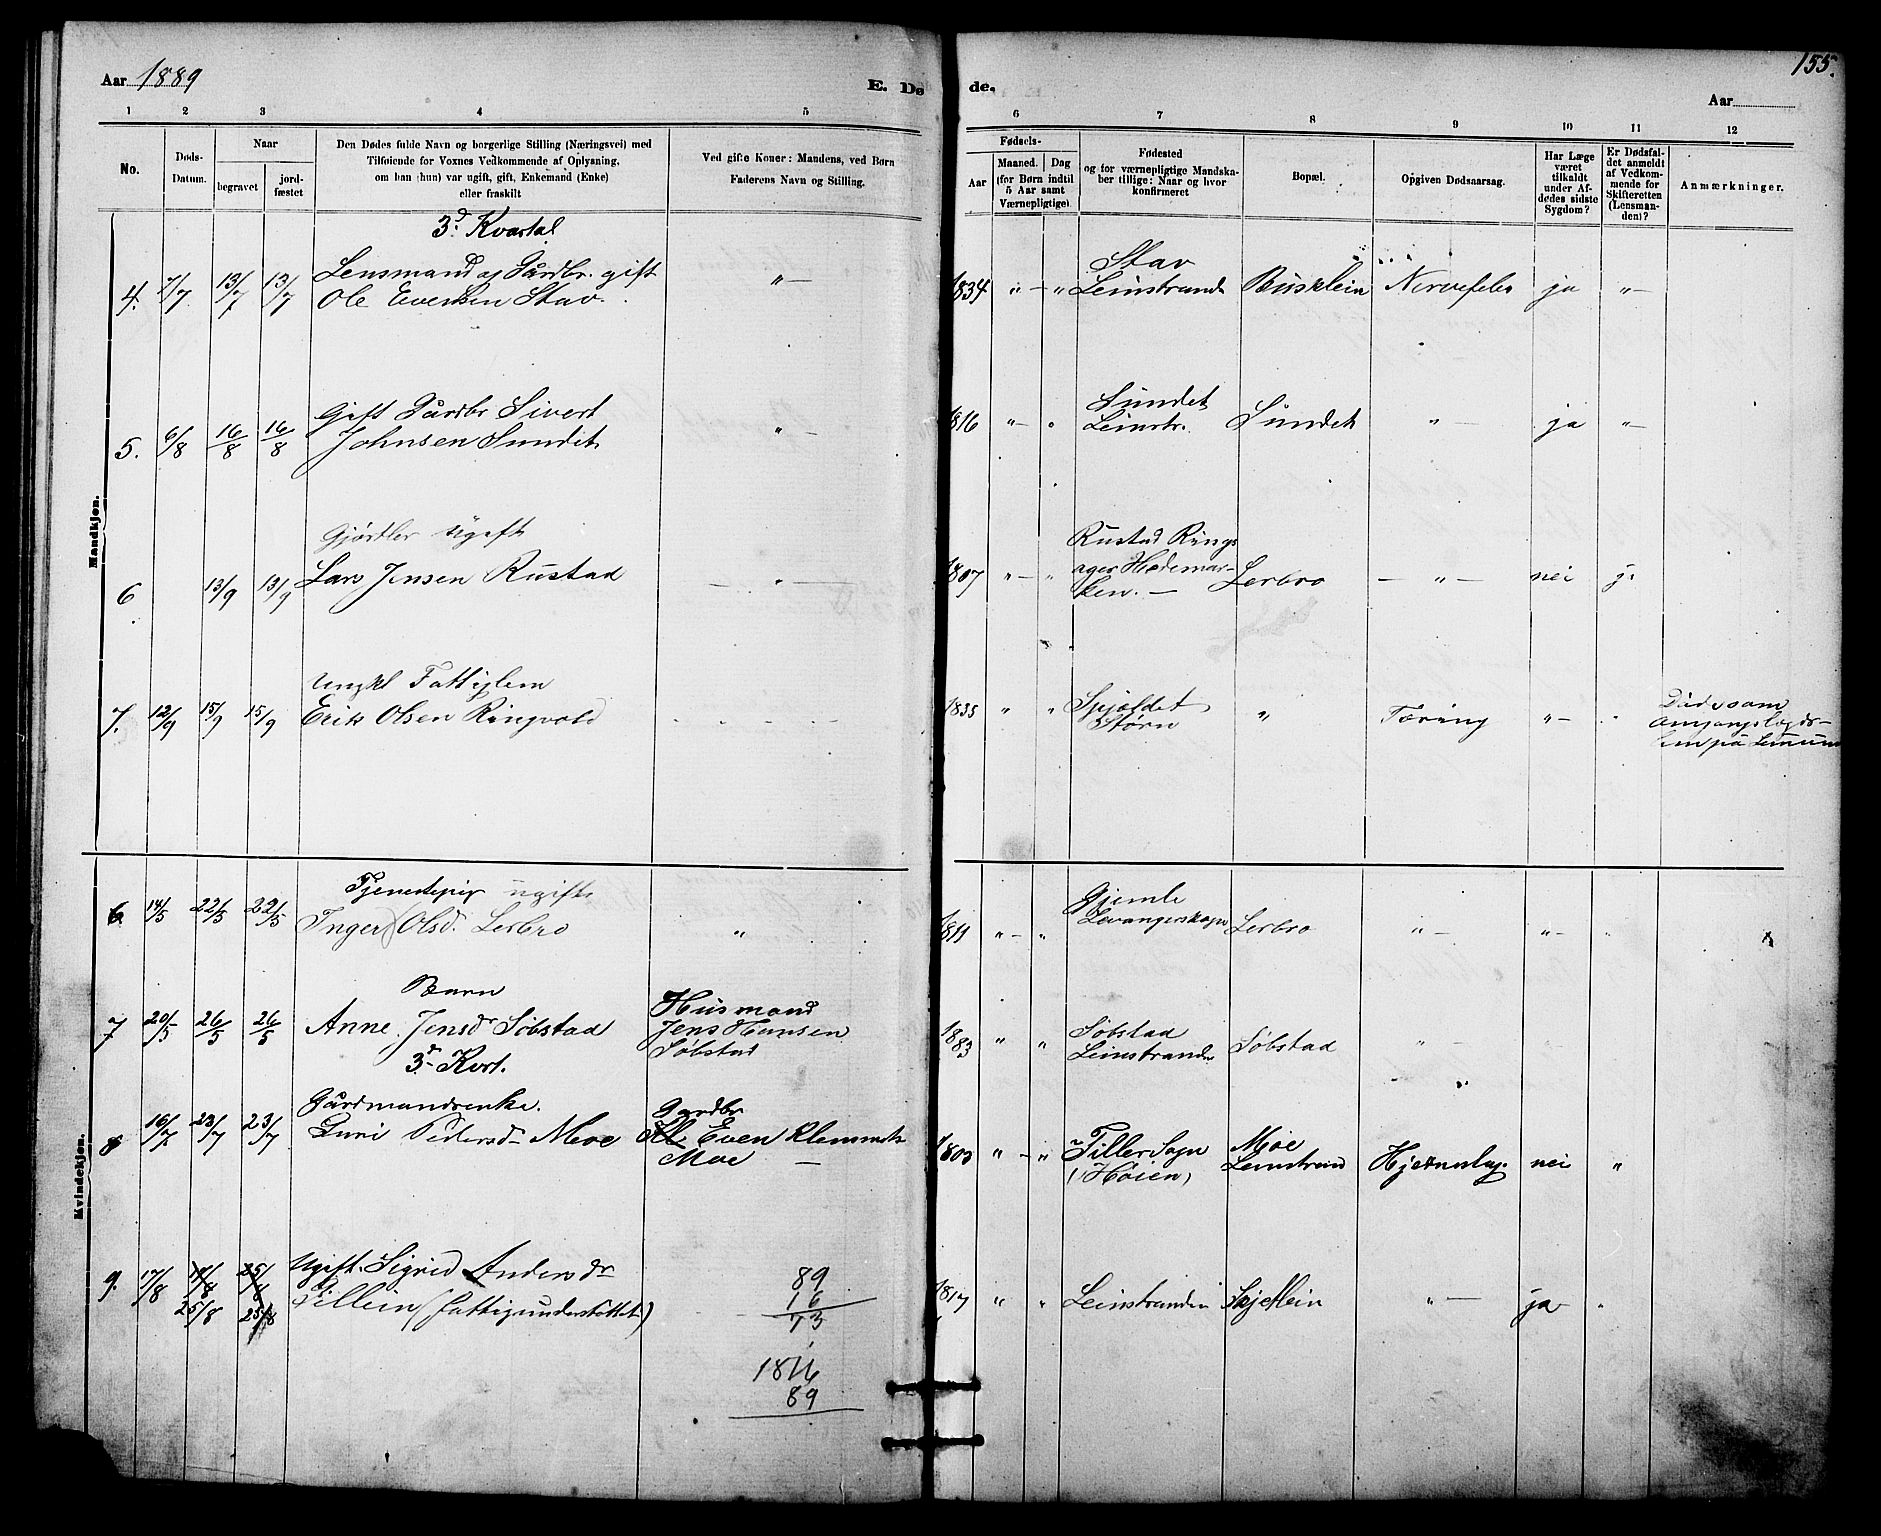 Aar 1889
E. Dø
de.
155.
Aar
1 2 3 4 5
6 7 8 9 10 11 12
No.
Døds-
Datum.
Naar
begravet
jord-
fæstet
Den Dødes fulde Navn og borgerlige Stilling (Næringsvei) med
Tilføiende for Voxnes Vedkommende af Oplysning,
om han (hun) var ugift, gift, Enkemand (Enke)
eller fraskilt
Ved gifte Koner: Mandens, ved Børn
Faderens Navn og Stilling.
Fødsels-
Aar
Maaned. Dag
(for Børn indtil
5 Aar samt
Værnepligtige).
Fødested
og for værnepligtige Mandska-
ber tillige: Naar og hvor
konfirmeret
Bopæl.
Opgiven Dødsaarsag.
Har Læge
været
tilkaldt
under Af-
dødes sidste
Sygdom?
Er Dødsfal-
det anmeldt
af Vedkom-
mende for
Skifteretten
(Lensman-
den)?
Anmærkninger.
Mandkjøn.
3d. Kvartal
4. 7/7 13/7 13/7 Lensmand og Gårdbr. gift
Ole Evensen Stav. " —
1834 " — " Stav
Leinstrand Busklein Nervefeber ja " —
5. 6/8 16/8 16/8 Gift Gårdbr Sivert
Johnsen Sundet " —
1816 " — " Sundet
Leinstr. Sundet " — ja " —
6 13/9 13/9 Gjørtler Ugift
Lars Jensen Rustad — " —
1807 " — " Rustad Rings
ager Hedemar-
ken. — Lerbro — " — nei j.
7. 12/9 15/9 15/9 Ungkl Fattiglem
Erik Olsen Ringvold
1835 " " Spjøldet
Støren " Tæring " —
Døde som
omgangslægds-
lem på
Kvindekjøn.
6 14/5 22/5 22/5 Tjenestepig ugift
Inger Olsd. Lerbro "
1811 " — " Gjemle
Levangerskogn Lerbro " — " —
7 20/5 26/5 26/5 Barn
Anne Jensdr Søbstad
Husmand
Jens Hansen
Søbstad
1883 " " Søbstad
Leinstranden Søbstad " —
3d Kvrt.
8 16/7 23/7 23/7 Gårdmandsenke.
Guri Pedersd— Moe
Gardbr
Even Klemmets
Moe —
1803 " — " Tiller Sogn
(Høien) Moe
Leinstrand Hjerneslag. nei "
9. 17/8 25/8 25/8 Ugift. Sigrid Andersdr
Tillein (fattigunderstöttet)
1817 " " Leinstranden Skjetlein " — ja "
89
16
73
1816
89